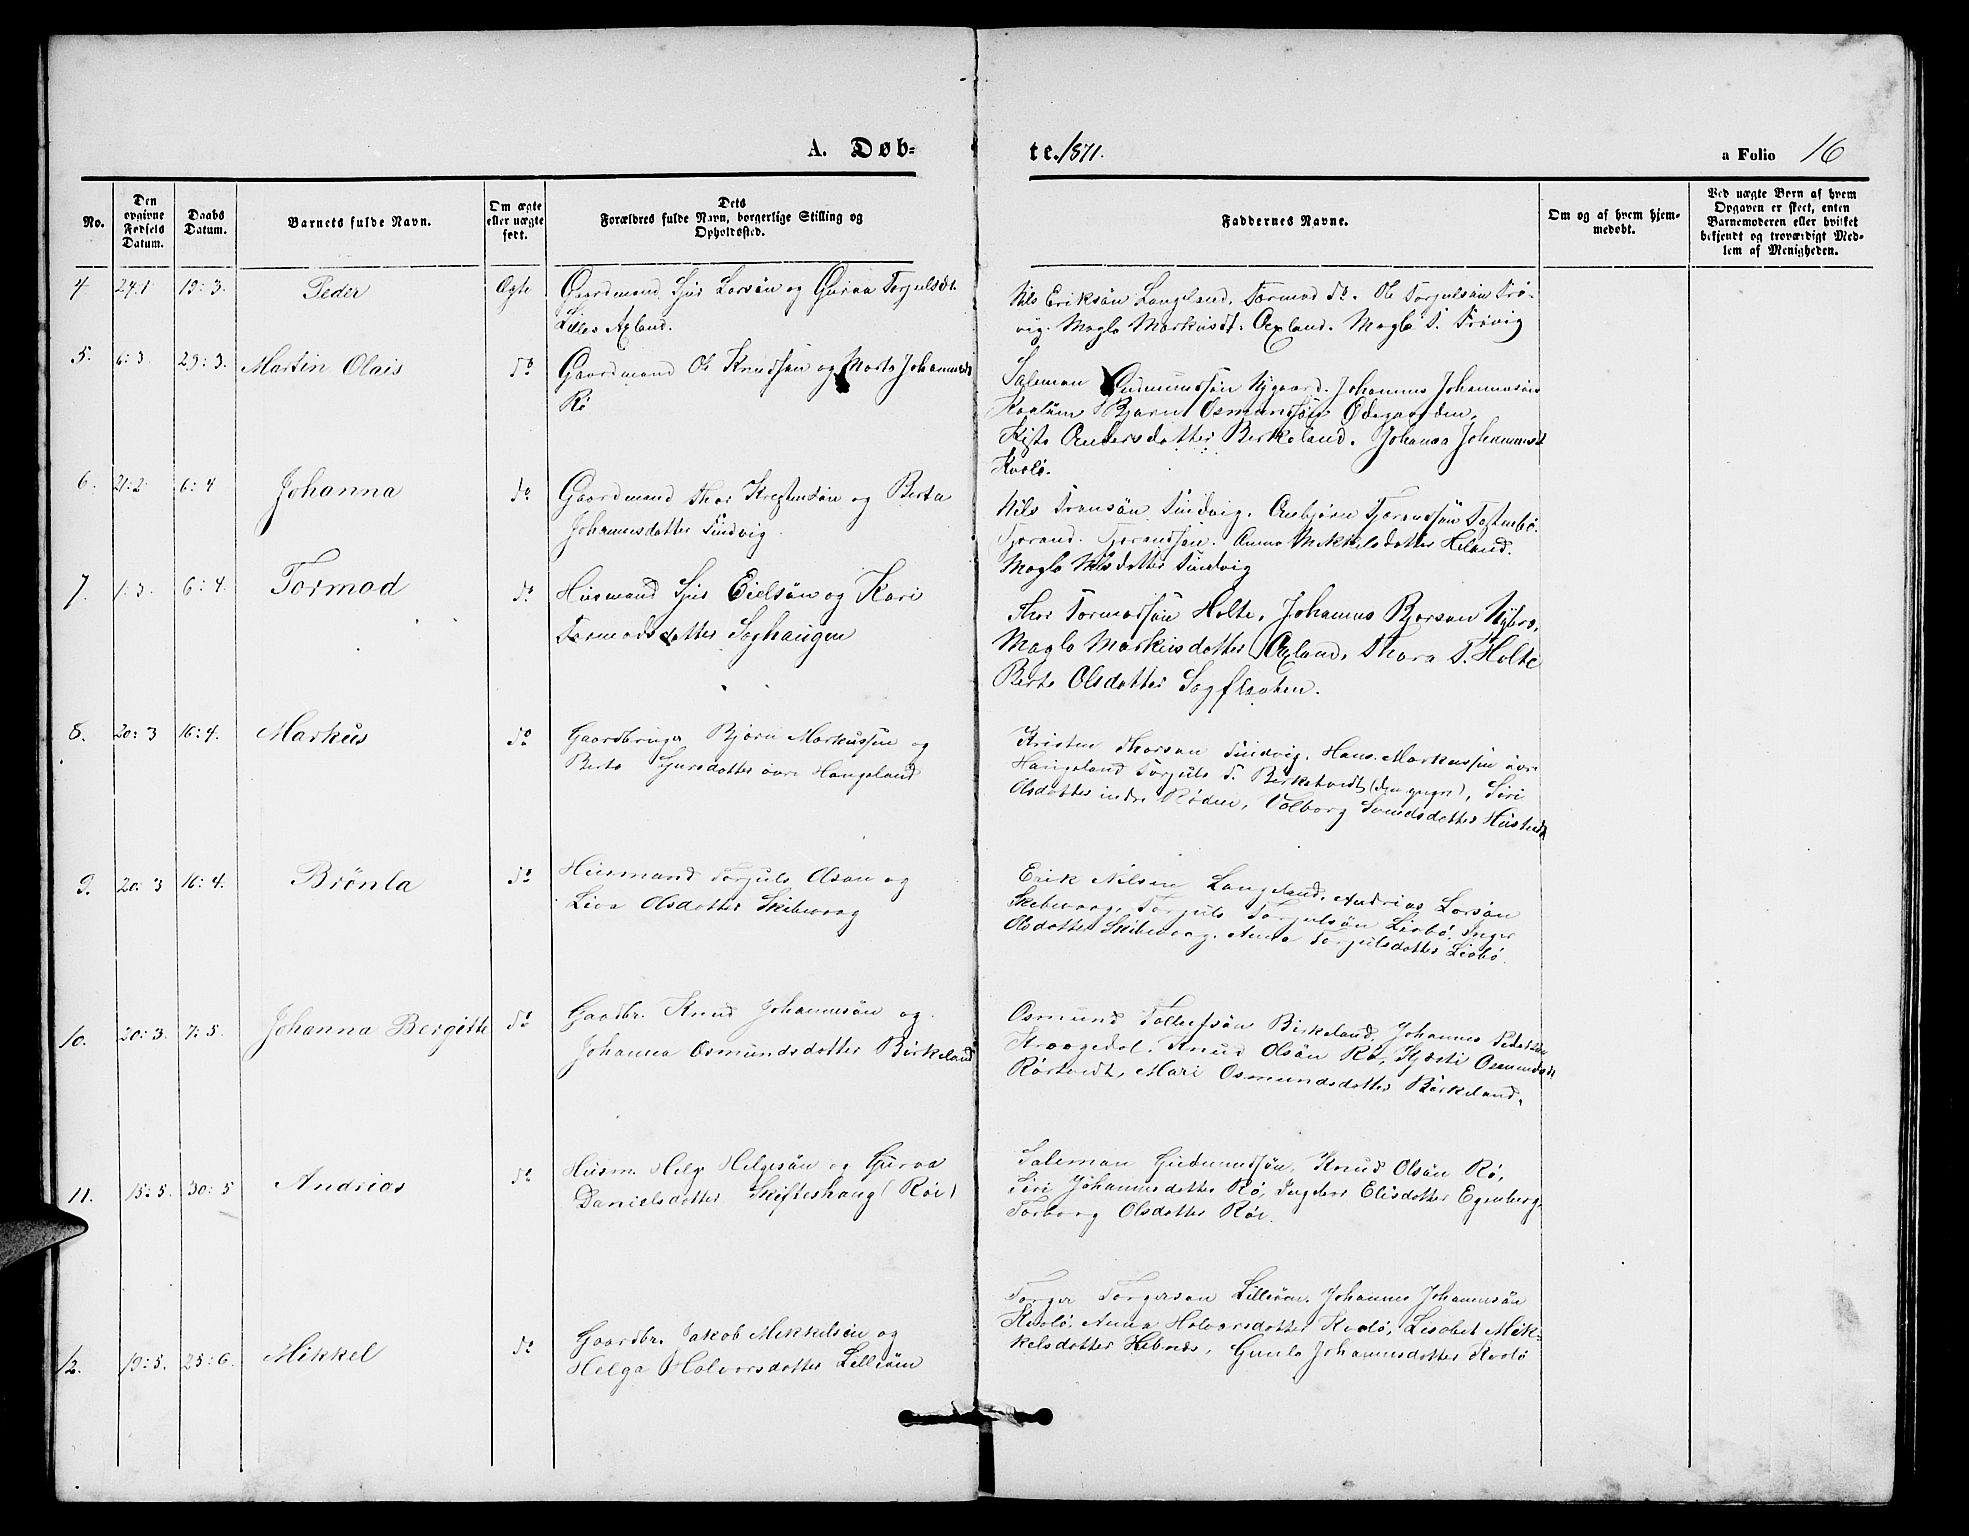 A. Døb-
te. 1871.
a Folio 16
No.
Den opgivne Fødsels Datum.
Daabs Datum.
Barnets fulde Navn.
Om ægte eller uægte født.
Dets Forældres fulde Navn, borgerlige Stilling og Opholdssted.
Faddernes Navne.
Om og af hvem hjemmedøbt.
Ved uægte Børn af hvem Opgaven er skeet, enten Barnemoderen eller hvilket bekjendt og troværdigt Medlem af Menigheden.
4. 24:1 19:3. Peder Ægte Gaardmand Sjur Larsøn og Guroa Torjulsdt.
Lilles Axland.
Nils Eriksøn Langeland, Tormod do. Ole Torjulsøn Trø-
vig. Magla Markusdt. Axland. Magla T. Trøvig
5. 6:3. 29:3. Martin Olais do Gaardmand Ol Knudsøn og Marta Johannesd
Rø
Saleman Gudmundsøn Nygaard. Johannes Johannesøn
Bjørn Osmundsøn Ødegaarden,
Andersdatter Berkeland. Johanna Johannesd
Kvalø.
6. 21:2 6:4 Johanna do Gaardmand Thor Kristensøn og Berta
Johannesdatter Tindvig.
Nils Tronsøn Tindvig. Anbjørn Tjerandsøn
Tjerand Tjerandsøn. Anna Mikkelsdatter Heland.
Magla Nilsdatter Tindvig
7. 1:3. 6:4. Tormod do Husmand Sjur Eielsøn og Kari
Tormodsdatter Saghaugen
Thor Tormodsøn Holte, Johannes Bjorson Nybro,
Magla Markusdatter Axland, Thora T. Holte
Berta Olsdatter Sagflaaten.
8. 20:3 16:4. Markus do Gaardbruger Bjørn Markussen og
Berta Sjursdatter øvre Hangeland
Kristen Thorson Tindvig, Hans Markussen øvre
Hangeland Torjuls T. Berketvedt (den yngre), Siri
Olsdatter indre Røden, Valborg Svendsdatter
9. 20:3 16:4. Brønla do Husmand Torjuls Olson og
Liva Olsdatter Skibevaag
Erik Nilsen Langeland, Andrias Larsøn
Skibevaag, Torjuls Torjulsøn Liabø, Inger
Olsdatter Skibevaag. Anna Torjulsdatter Liabø.
10. 20:3. 7:5. Johanna Bergitte do Gaardbr. Knud Johannesøn og
Johanna Osmundsdatter Birkeland
Osmund Tollefsøn Birkeland, Johannes Pedersøn
Knud Olsøn Rø, Kjersti Osmundsdt
Rørtvedt, Mari Osmundsdatter Birkeland.
11. 15:5. 30:5 Andrias do Husm. Helge Helgesøn og Guroa
Danielsdatter Skifteshaug (Røi)
Saleman Gudmundsøn, Knud Olsøn Rø,
Siri Johannesdatter Rø, Elisdatter Egenberg,
Torborg Olsdatter Røi.
12. 19:5. 25:6. Mikkel do Gaardbr. Jakob Mikkelsen og
Helga Halvorsdatter Lilleøen
Torger Torgerson Lilleøen. Johannes Johannesøn
Kvalø, Anna Halvorsdatter Kvalø, Lisabet Mik-
kelsdatter Hebnes, Gunla Johannesdatter Kvalø